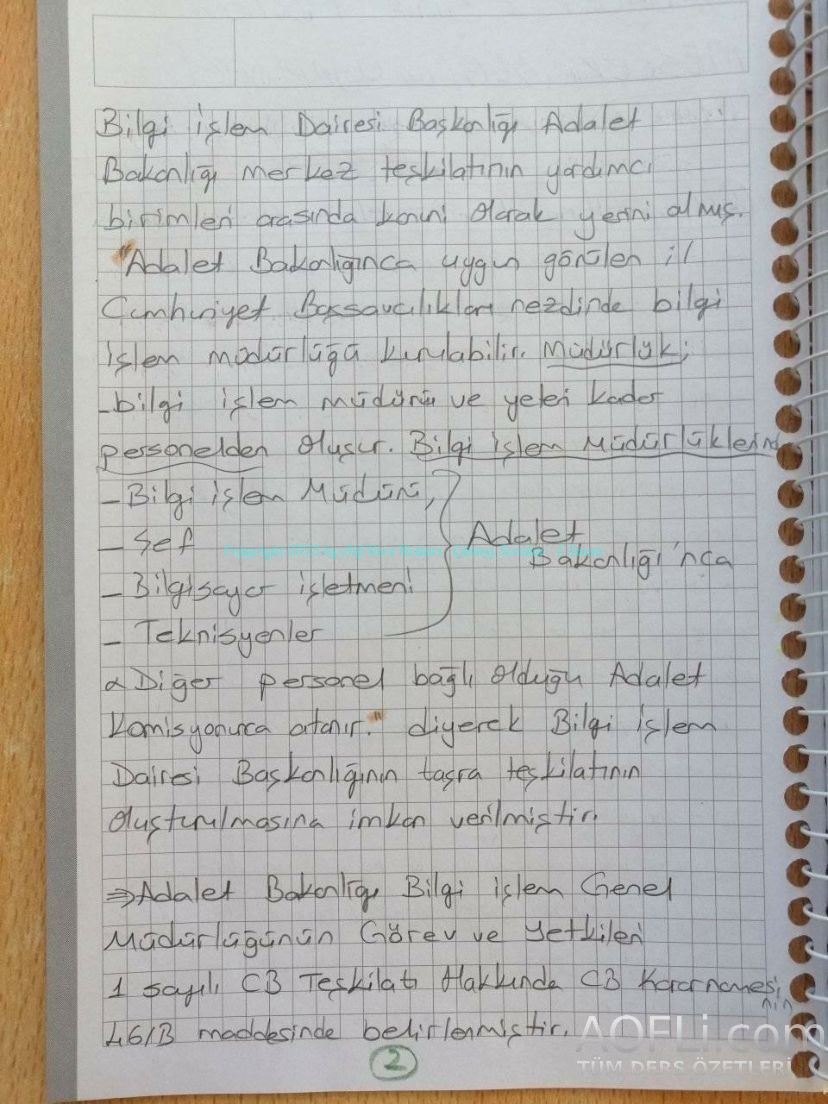 Bilgi işlem Dairesi Başkanlığı Adalet
Bakanlığı merkez teşkilatının yardımcı
birimleri arasında kanuni olarak yerini almış.
"Adalet Bakanlığınca uygun görülen il
Cumhuriyet Başsavcılıkları nezdinde bilgi
işlem müdürlüğü kurulabilir. Müdürlük;
-bilgi işlem müdürü ve yeteri kadar
personelden oluşur. Bilgi işlem Müdürlüklerine
- Bilgi işlem Müdürü,
- Şef
- Bilgisayar işletmeni
- Teknisyenler
Adalet
Bakanlığı'nca
α Diğer personel bağlı olduğu Adalet
Komisyonunca atanır." diyerek Bilgi işlem
Dairesi Başkanlığının taşra teşkilatının
oluşturulmasına imkan verilmiştir.
⇒Adalet Bakanlığı Bilgi işlem Genel
Müdürlüğünün Görev ve yetkileri
1 sayılı CB Teşkilatı Hakkında CB Kararnamesi
nin
46/B maddesinde belirlenmiştir.
2
AÖFLi.com
TÜM DERS ÖZETLERİ